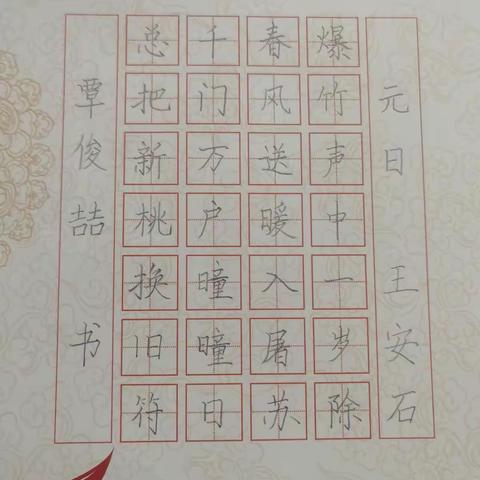 元日 王安石
爆竹声中一岁除
春风送暖入屠苏
千门万户曈曈日
总把新桃换旧符
覃俊喆 书